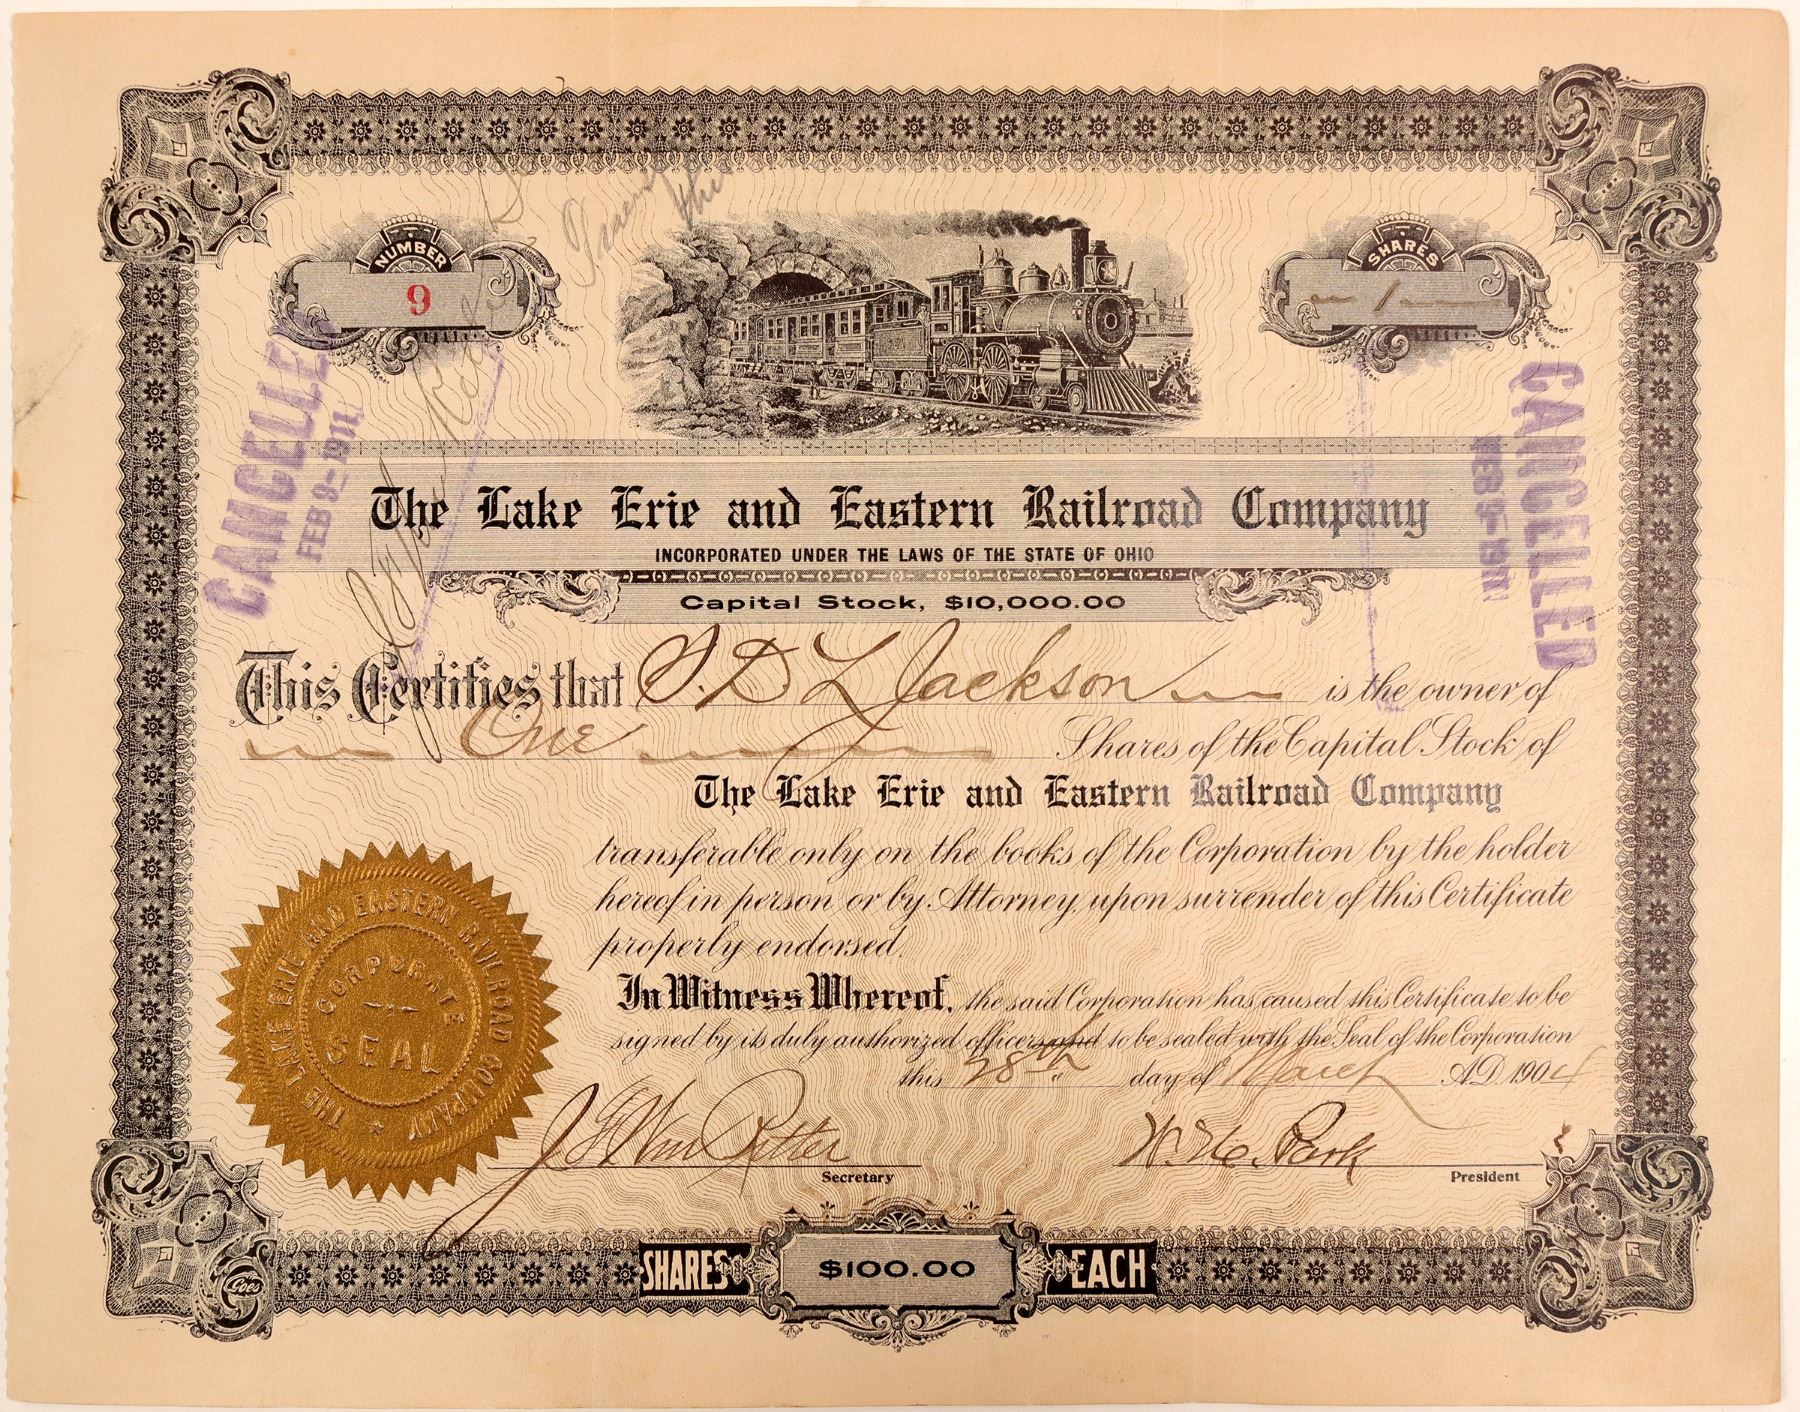 NUMBER
9
SHARES
1
CANCELLED
FEB 9-1911
CANCELLED
FEB 9-1911
The Lake Erie and Eastern Railroad Company
INCORPORATED UNDER THE LAWS OF THE STATE OF OHIO
Capital Stock, $10,000.00
This Certifies that D. L. Jackson is the owner of
One Shares of the Capital Stock of
The Lake Erie and Eastern Railroad Company
transferable only on the books of the Corporation by the holder
hereof in person or by Attorney, upon surrender of this Certificate
properly endorsed.
In Witness Whereof, the said Corporation has caused this Certificate to be
signed by its duly authorized officers and to be sealed with the Seal of the Corporation
this 28th day of March A.D. 1904
THE LAKE ERIE AND EASTERN RAILROAD COMPANY
CORPORATE
SEAL
Secretary
W. H. Park
President
SHARES $100.00 EACH
Goes